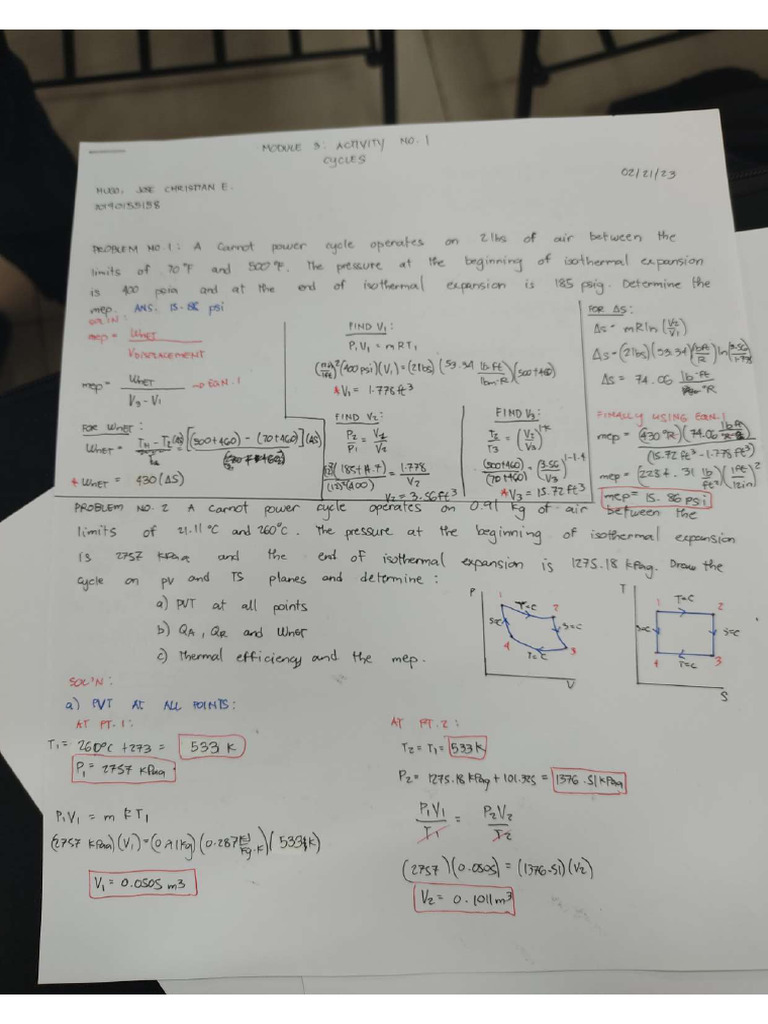 MODULE 3: ACTIVITY NO. 1
CYCLES
02/21/23
MUGO, JOSE CHRISTIAN E.
20190155158
PROBLEM NO. 1: A Carnot power cycle operates on 2 lbs of air between the
limits of 70°F and 500°F. The pressure at the beginning of isothermal expansion
is 400 psia and at the end of isothermal expansion is 185 psig. Determine the
mep. ANS. 15.86 psi
SOL'N:
mep = WNET / VDISPLACEMENT
mep = WNET / V3 - V1 → EQN. 1
FOR WNET:
WNET = [(500+460) - (70+460)](ΔS)
* WNET = 430(ΔS)
FIND V1:
P1V1 = mRT1
(400 psi)(V1) = (2lbs)(53.34 lb·ft / lbm·R)(500+460)
* V1 = 1.778 ft³
FIND V2:
P2/P1 = V1/V2
(185+14.7) / (400) = 1.778 / V2
V2 = 3.56 ft³
FIND V3:
T2/T3 = (V2/V3)^1-k
(500+460)/(70+460) = (3.56/V3)^1-1.4
* V3 = 15.72 ft³
FOR ΔS:
ΔS = mR ln (V2/V1)
ΔS = (2lbs)(53.34)(lb ft/R) ln(3.56/1.778)
ΔS = 74.06 lb·ft/°R
FINALLY USING EQN. 1
mep = (430°R)(74.06 lb ft) / (15.72 ft³ - 1.778 ft³)
mep = (2284.31 lb/ft²)(1ft/12in)²
mep = 15.86 psi
PROBLEM NO. 2 A Carnot power cycle operates on 0.91 kg of air between the
limits of 21.11°C and 260°C. The pressure at the beginning of isothermal expansion
is 2757 KPaa and the end of isothermal expansion is 1275.18 KPag. Draw the
cycle on pv and TS planes and determine:
a) PVT at all points
b) QA, QR and WNET
c) Thermal efficiency and the mep.
P
1
T=C
2
S=C
S=C
4
T=C
3
V
T
1
T=C
2
S=C
S=C
4
T=C
3
S
SOL'N:
a) PVT AT ALL POINTS:
AT PT. 1:
T1 = 260°C + 273 = 533 K
P1 = 2757 KPaa
P1V1 = m R T1
(2757 KPaa)(V1) = (0.91kg)(0.287 KJ/Kg·K)(533 K)
V1 = 0.0505 m3
AT PT. 2:
T2 = T1 = 533 K
P2 = 1275.18 KPag + 101.325 = 1376.51 KPaa
P1V1 / T1 = P2V2 / T2
(2757)(0.0505) = (1376.51)(V2)
V2 = 0.1011 m³